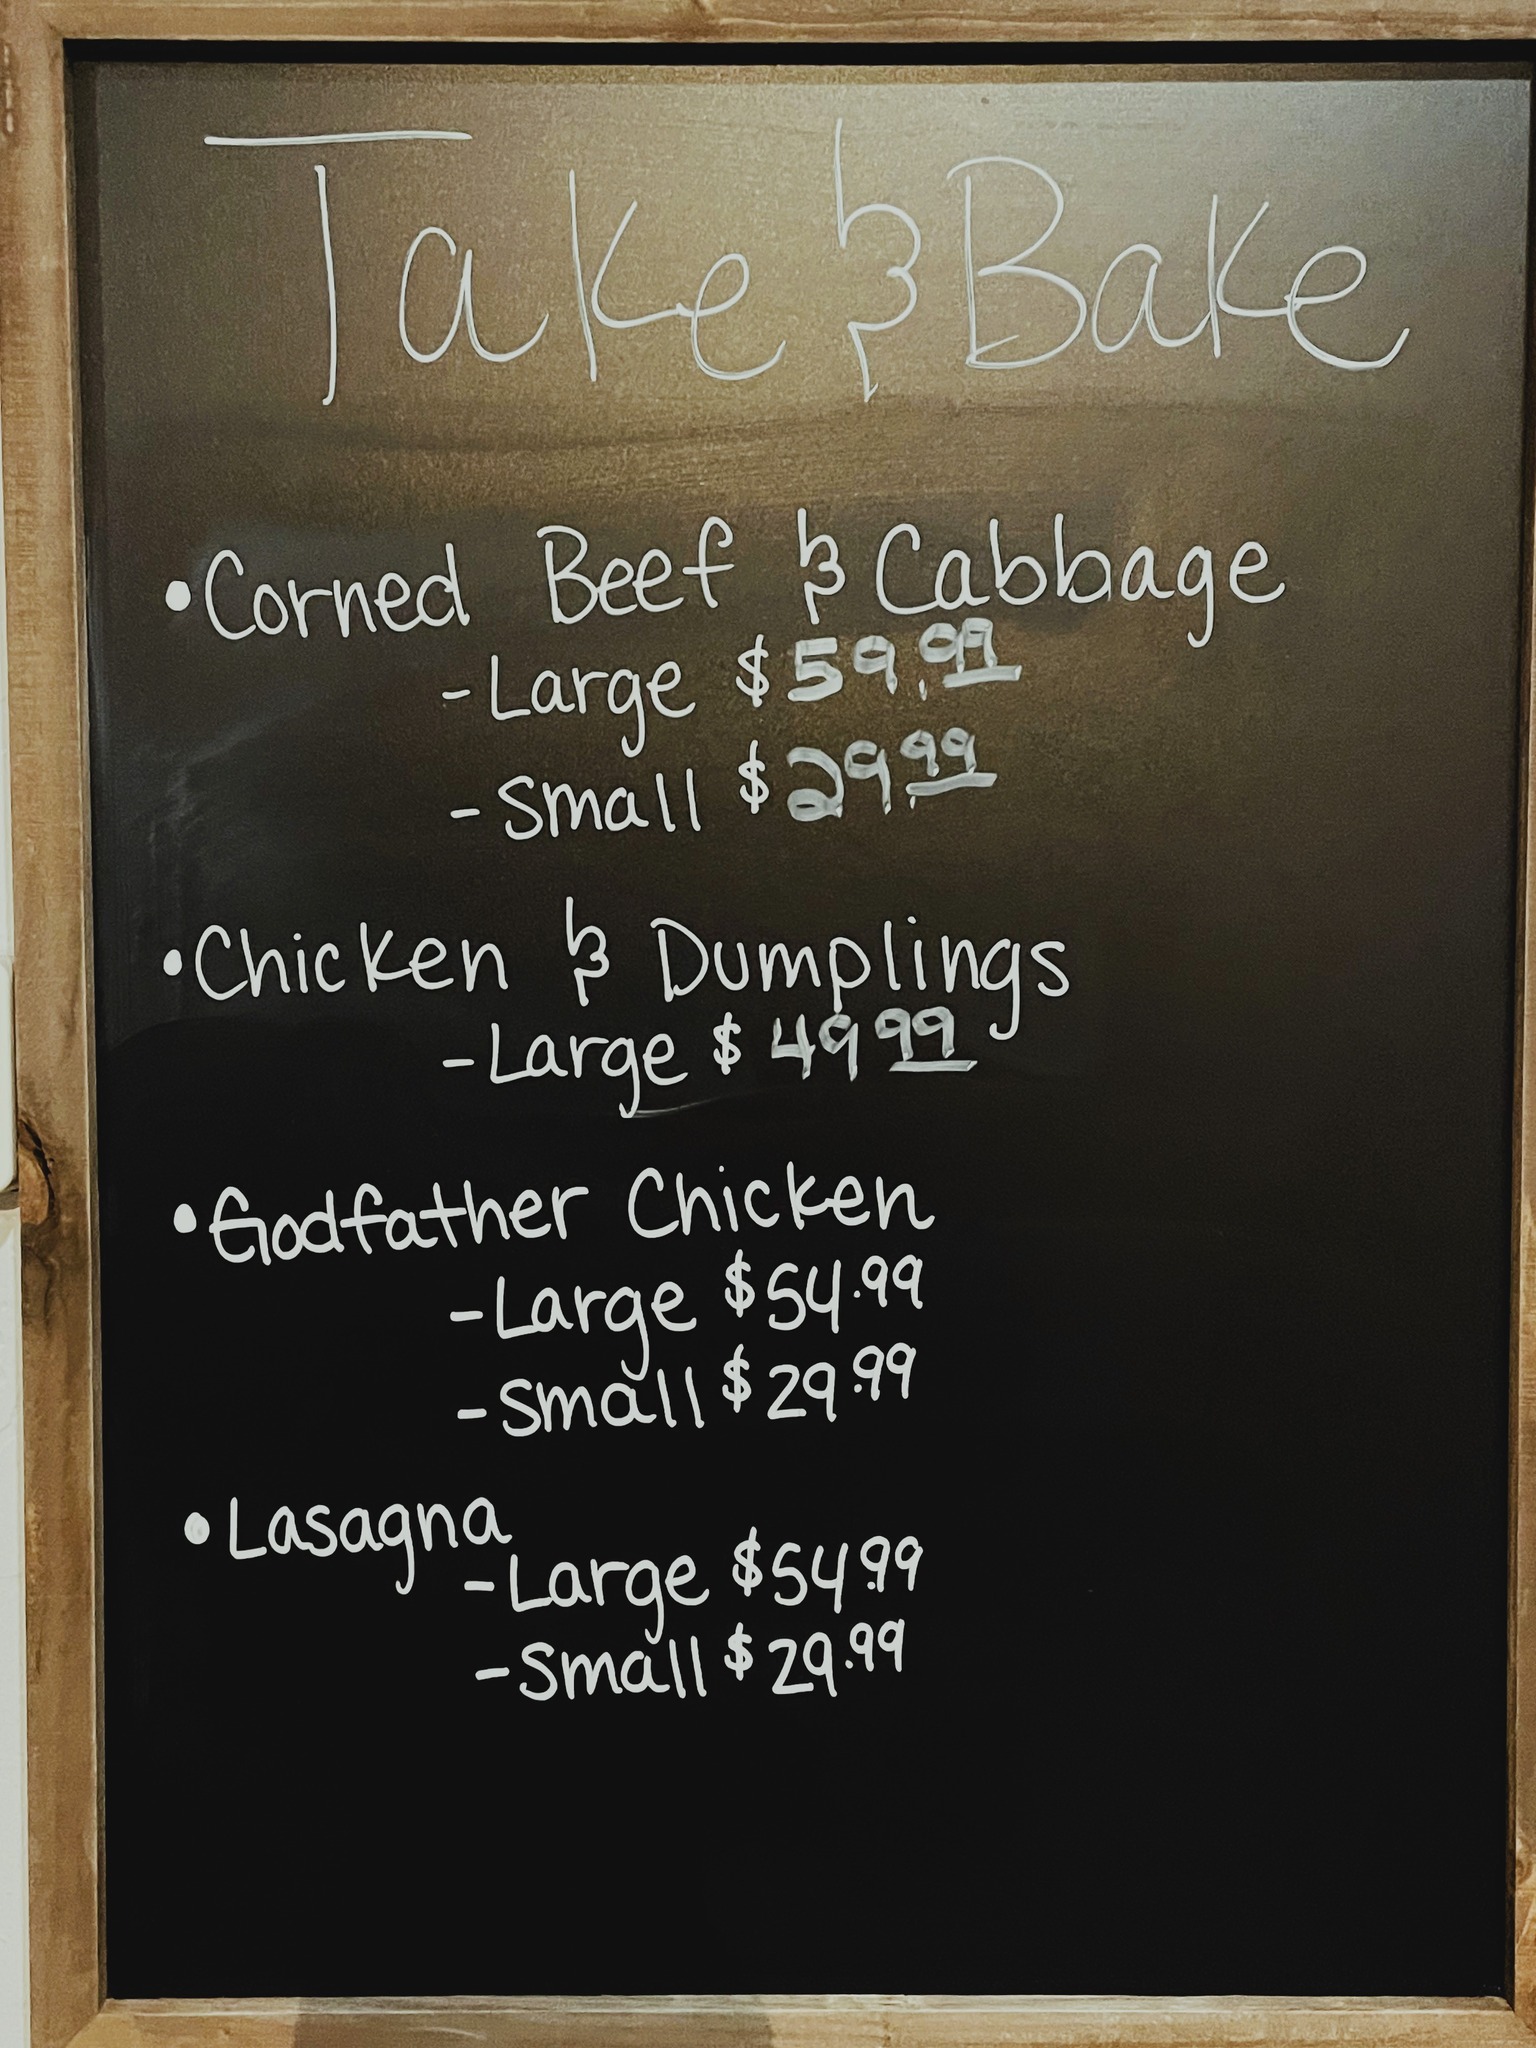 Take & Bake
•Corned Beef & Cabbage
-Large $59.99
-Small $29.99
•Chicken & Dumplings
-Large $49 99
•Godfather Chicken
-Large $54.99
-Small $29.99
•Lasagna
-Large $54.99
-Small $29.99